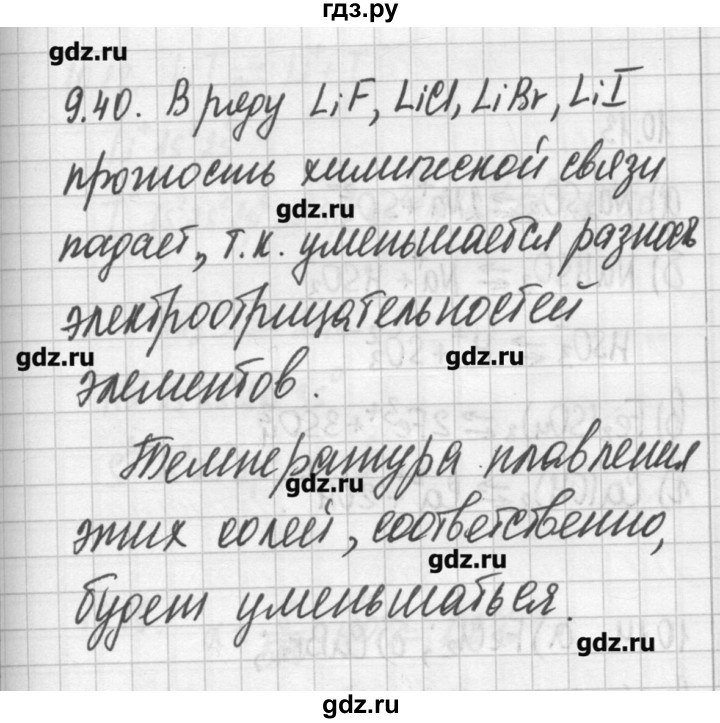 гдз.ру
gdz.ru
9.40. В ряду LiF, LiCl, LiBr, LiI
прочность химической связи
gdz.ru
падает, т.к. уменьшается разность
электроотрицательностей
gdz.ru
gdz.ru
элементов.
Температура плавления
gdz.ru
этих солей, соответственно,
gdz.ru
будет уменьшаться.
gdz.ru
gdz.ru